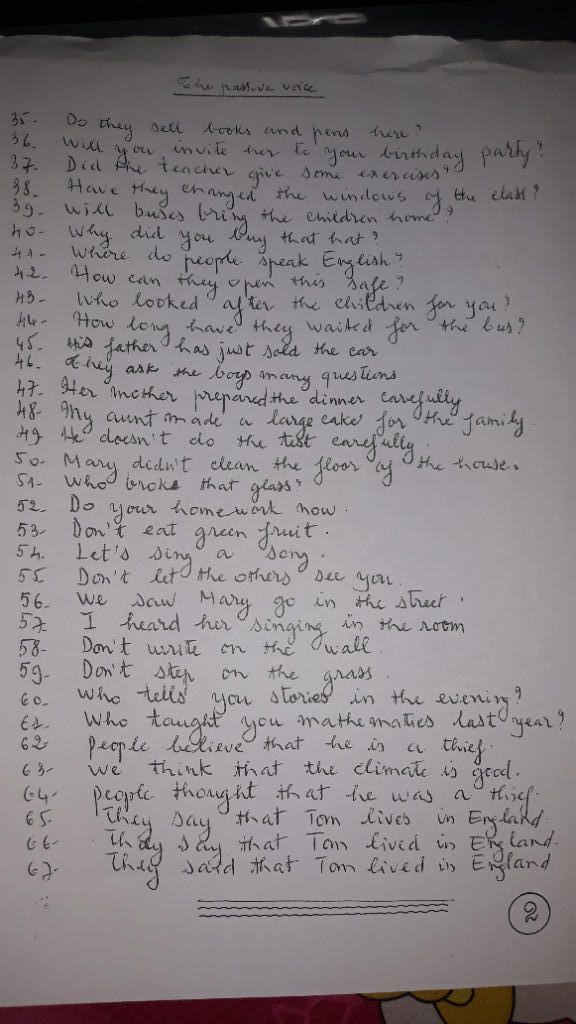 The passive voice
35- Do they sell books and pens here?
36. Will you invite her to your birthday party?
37- Did the teacher give some exercises?
38- Have they changed the windows of the class?
39- Will buses bring the children home?
40- Why did you buy that hat?
41- Where do people speak English?
42- How can they open this safe?
43- Who looked after the children for you?
44- How long have they waited for the bus?
45. His father has just sold the car
46. They ask the boys many questions
47- Her mother prepared the dinner carefully
48- My aunt made a large cake for the family.
49 He doesn't do the test carefully.
50- Mary didn't clean the floor of the house.
51- Who broke that glass?
52- Do your homework now.
53- Don't eat green fruit.
54. Let's sing a song.
55 Don't let the others see you.
56- We saw Mary go in the street.
57- I heard her singing in the room
58- Don't write on the wall.
59- Don't step on the grass.
60- Who tells you stories in the evening?
61- Who taught you mathematics last year?
62 People believe that he is a thief.
63- We think that the climate is good.
64- People thought that he was a thief.
65- They say that Tom lives in England.
66- They say that Tom lived in England.
67- They said that Tom lived in England.
2